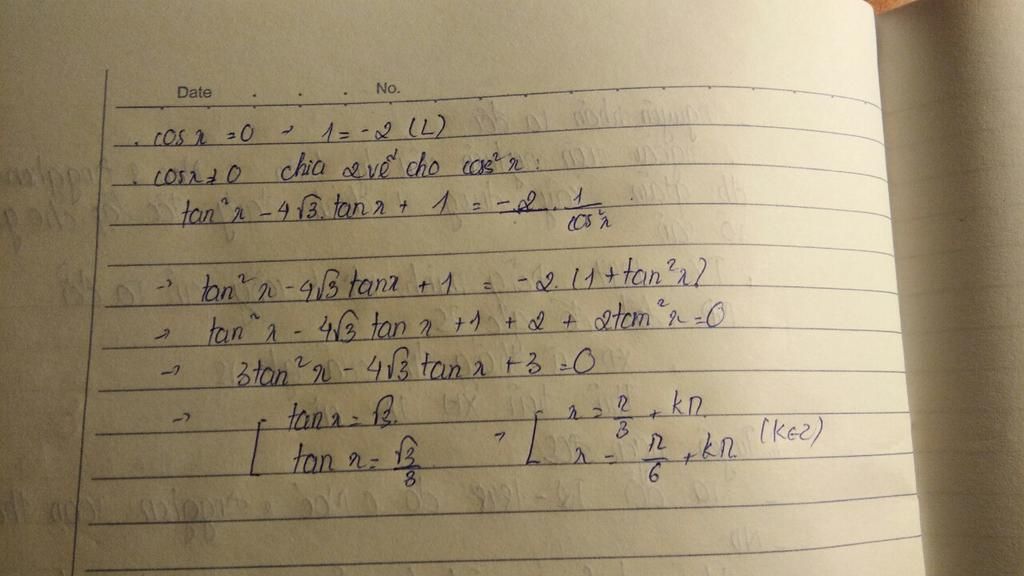 Date . . . No.
. cos x = 0 → 1 = -2 (L)
. cos x ≠ 0 chia 2 vế cho cos² x :
tan² x - 4√3. tan x + 1 = -2 . 1/cos² x
→ tan² x - 4√3 tan x + 1 = -2. (1 + tan² x)
→ tan² x - 4√3 tan x + 1 + 2 + 2tan² x = 0
→ 3tan² x - 4√3 tan x + 3 = 0
→ [ tan x = √3. → [ x = π/3 + kπ
tan x = √3/3 x = π/6 + kπ (k∈Z)